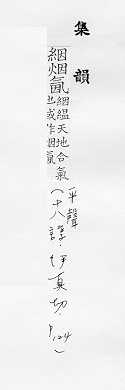 集韻
絪烟氤
絪縕天地合氣
也或作烟氤
(平聲
十八諄.伊真切.P124)